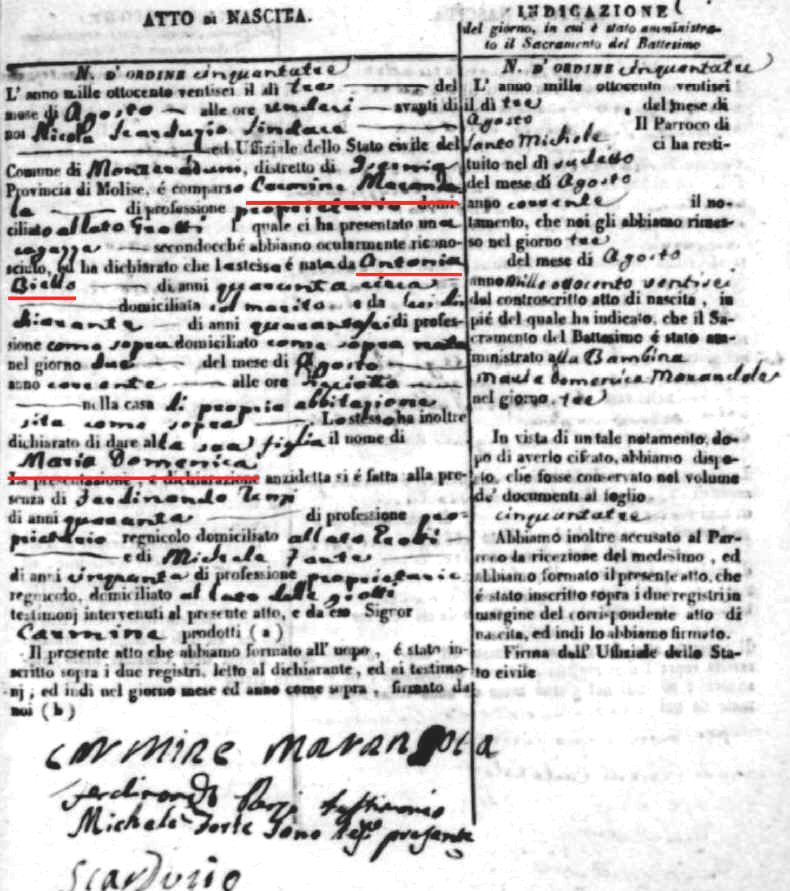 ATTO di NASCITA.
N. D'ORDINE cinquantatre
L' anno mille ottocento ventisei il dì tre del
mese di Agosto alle ore undeci avanti di
noi Nicola Scarduzio Sindaco
ed Uffiziale dello Stato civile del
Comune di Monteroduni, distretto di Isernia
Provincia di Molise, é comparso Carmine Marando
la di professione proprietario domi-
ciliato allato Grotti l quale ci ha presentato una
ragazza secondocchè abbiamo ocularmente ricono-
sciuto, ed ha dichiarato che lastessa é nata da Antonia
Biello di anni quaranta circa
domiciliata col marito e da lui di
chiarante di anni quarantasei di profes-
sione come sopra domiciliato come sopra nata
nel giorno due del mese di Agosto
anno corrente alle ore
nella casa di propria abbitazione
sita come sopra Lo stesso ha inoltre
dichiarato di dare alla sua figlia il nome di
Maria Domenica
La presentazione, e dichiarazione anzidetta si é fatta alla pre-
senza di Ferdinando
di anni quaranta di professione pro-
prietario regnicolo domiciliato allato Grotti
e di Michele Forte
di anni cinquanta di professione proprietario
regnicolo, domiciliato al lato delle grotti
testimonj intervenuti al presente atto, e da esso Signor
Carmine prodotti (a)
Il presente atto che abbiamo formato all' uopo, é stato in-
scritto sopra i due registri, letto al dichiarante, ed ai testimo-
nj; ed indi nel giorno mese ed anno come sopra, firmato da
noi (b)
carmine marandola
Ferdinando testimonio
Michele Forte sono test. presente
Scarduzio
INDICAZIONE
del giorno, in cui è stato amministra-
to il Sacramento del Battesimo
N. D'ORDINE cinquantatre
L' anno mille ottocento ventisei
il dì tre del mese di
Agosto Il Parroco di
Santo Michele ci ha resti-
tuito nel dì sudetto
del mese di Agosto
anno corrente il no-
tamento, che noi gli abbiamo rimes-
so nel giorno tre
del mese di Agosto
anno mille ottocento ventisei
del controscritto atto di nascita, in
pié del quale ha indicato, che il Sa-
cramento del Battesimo é stato am-
ministrato alla Bambina
Maria Domenica Marandola
nel giorno. tre
In vista di un tale notamento, do-
po di averlo cifrato, abbiamo dispo-
sto, che fosse conservato nel volume
de' documenti al foglio
cinquantatre
Abbiamo inoltre accusato al Par-
roco la ricezione del medesimo, ed
abbiamo formato il presente atto, che
é stato inscritto sopra i due registri in
margine del corrispondente atto di
nascita, ed indi lo abbiamo firmato.
Firma dell' Uffiziale dello Sta-
to civile